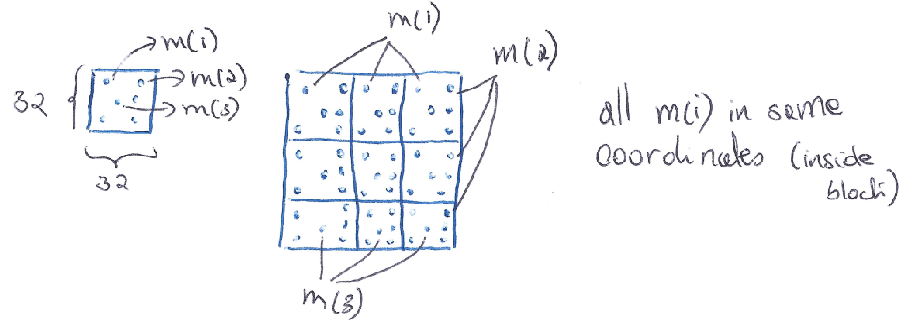 m(1)
m(2)
m(3)
32
32
m(1)
m(2)
m(3)
all m(i) in same
coordinates (inside
block)